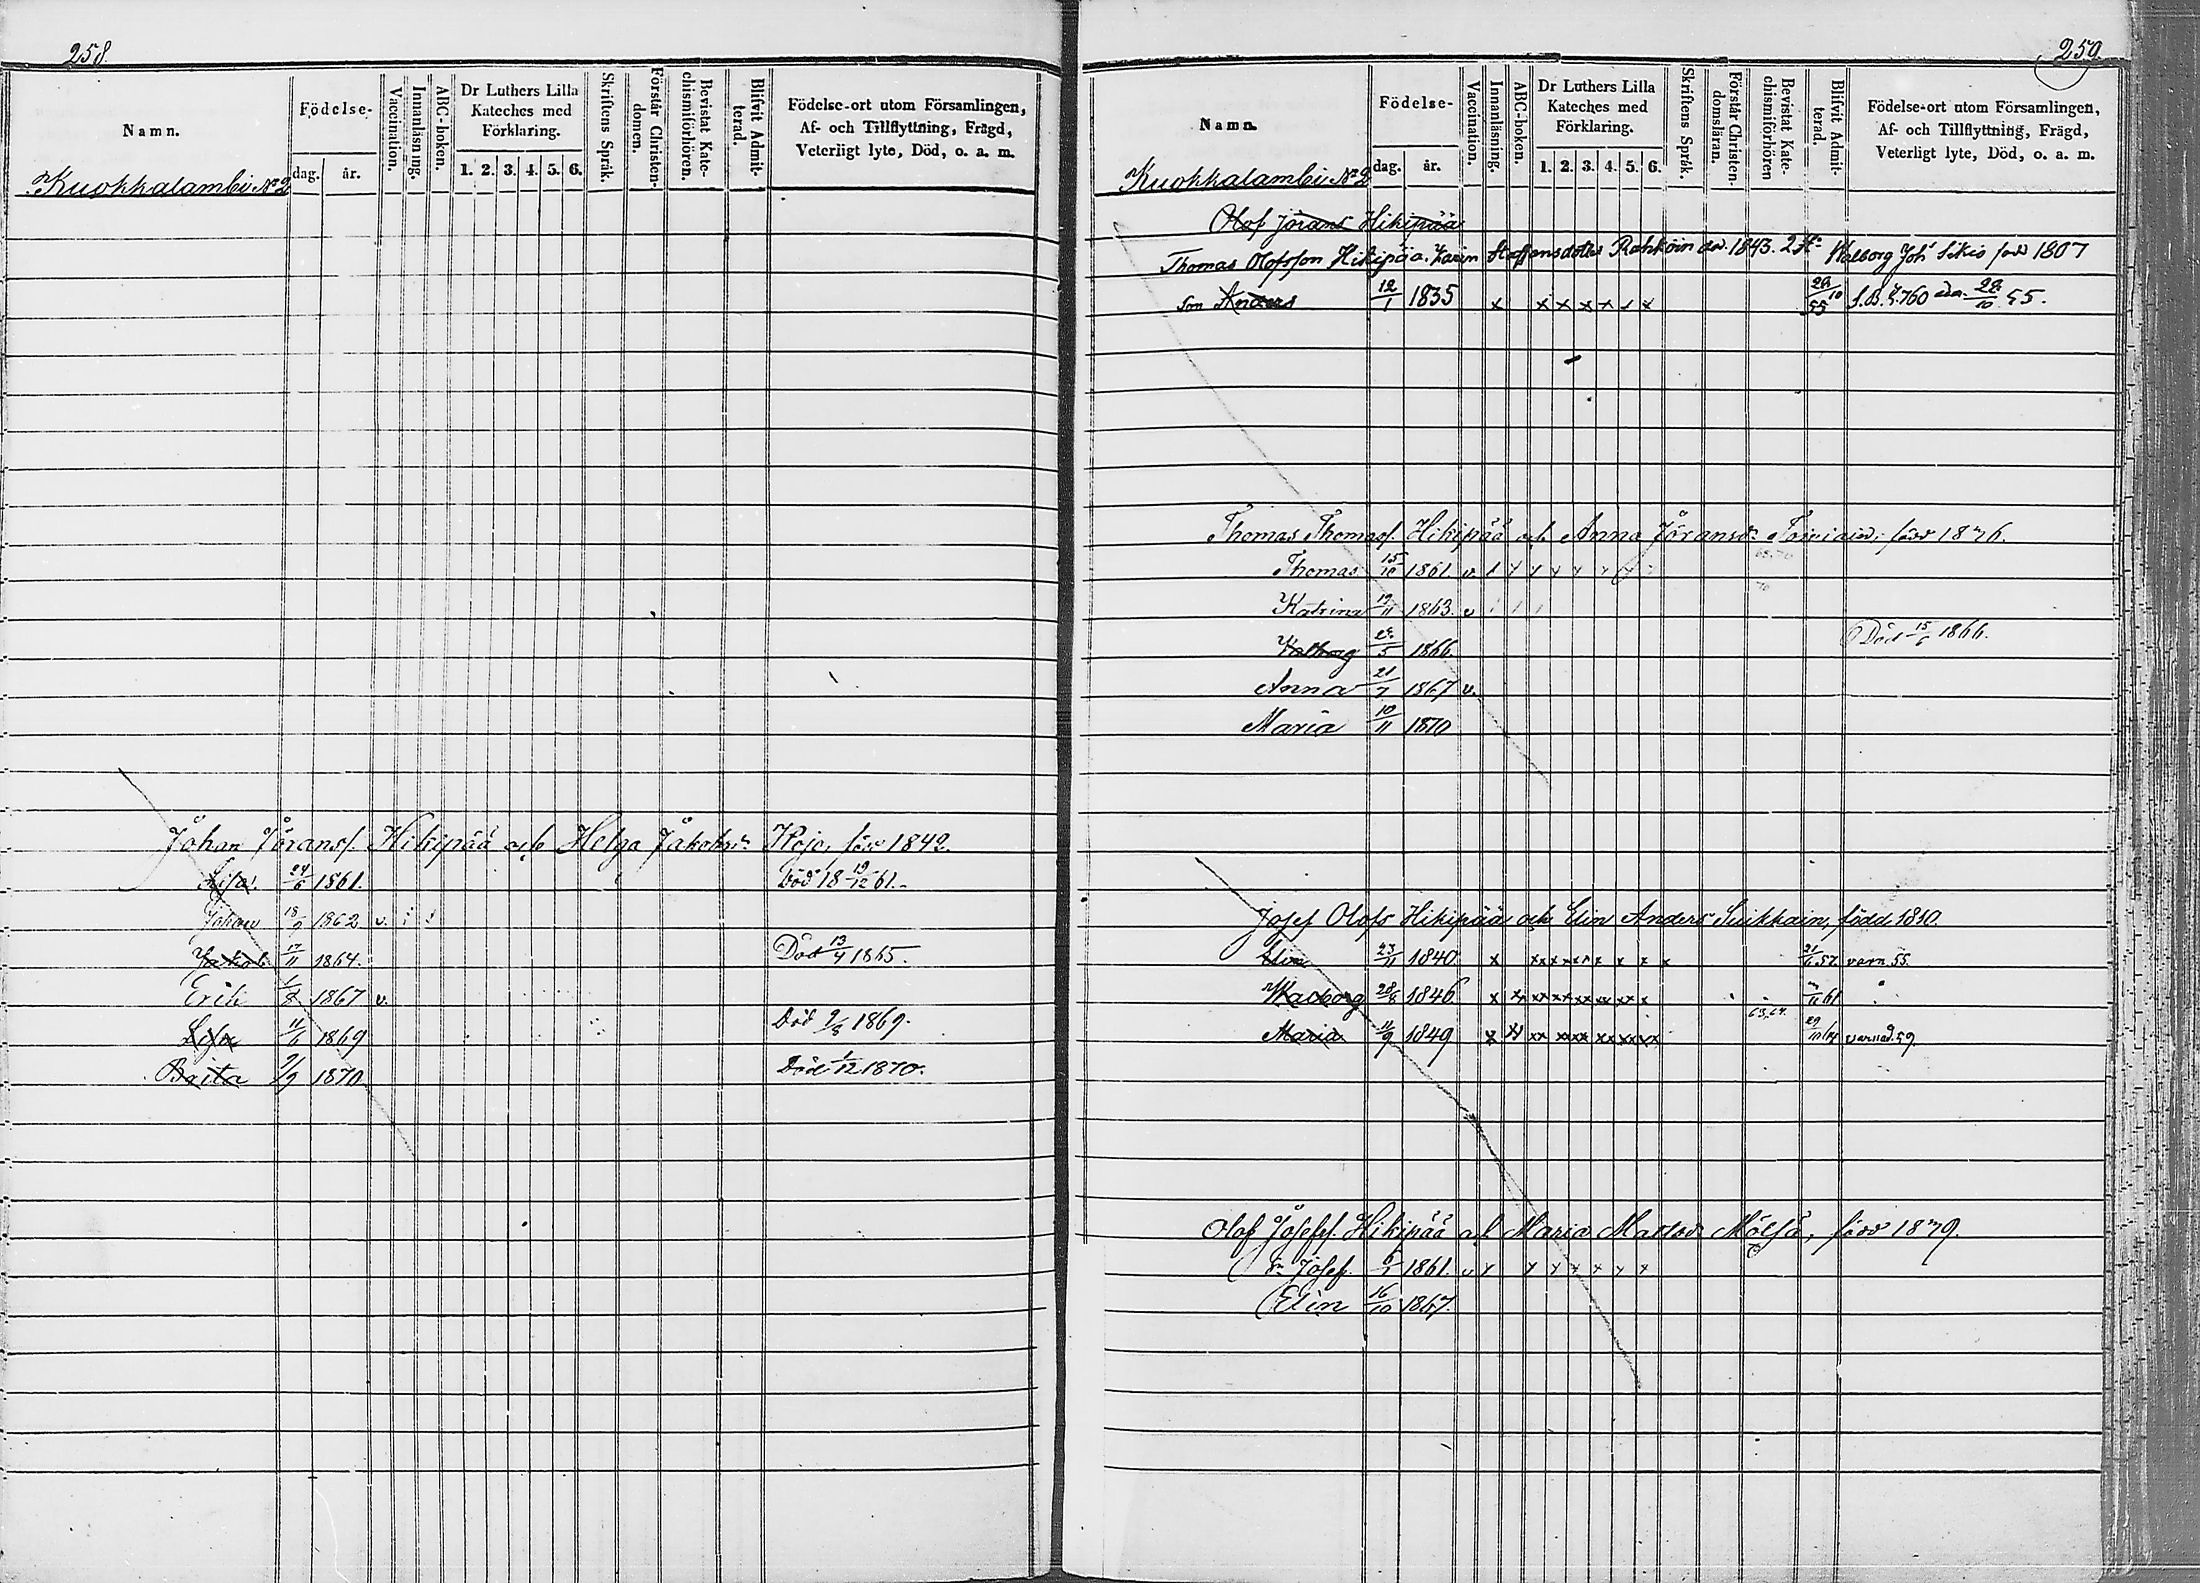 258.
Namn.
Födelse-
dag. år.
Vaccination.
Innanläsning.
ABC-boken.
Dr Luthers Lilla Kateches med Förklaring.
1. 2. 3. 4. 5. 6.
Skriftens Språk.
Förstår Christendomen.
Bevistat Katechismiförhören.
Blifvit Admitterad.
Födelse-ort utom Församlingen,
Af- och Tillflyttning, Frägd,
Veterligt lyte, Död, o. a. m.
Kuokkalambi No 2
Johan Jöranss. Hikipää och Helga Jakobsdr. född 1842.
Lisa 24/6 1861. Död 18 19/12 61.
Johan 18/9 1862 v.
Jakob 17/11 1864. Död 13/4 1865.
Erik 1/8 1867 v.
Lisa 11/6 1869 Död 9/8 1869.
Brita 2/9 1870 Död 1/12 1870.
259.
Namn.
Födelse-
dag. år.
Vaccination.
Innanläsning.
ABC-boken.
Dr Luthers Lilla Kateches med Förklaring.
1. 2. 3. 4. 5. 6.
Skriftens Språk.
Förstår Christendomsläran.
Bevistat Katechismiförhören
Blifvit Admitterad.
Födelse-ort utom Församlingen,
Af- och Tillflyttning, Frägd,
Veterligt lyte, Död, o. a. m.
Kuokkalambi No 2
Olof Jörans Hikipää
Thomas Olofsson Hikipää. Karin Staffansdotter 1843. 2 Walborg Joh född 1807
son Anders 12/1 1835 x x x x x x x 28/10 55 S.B. 760 28/10 55.
Thomas Thomass. Hikipää och Anna Jöransdr. född
Thomas 15/10 1861. v.
Katrina 19/11 1863. v
Walborg 5 1866. Död 15/6 1866.
Anna 21/7 1867 v.
Maria 10/11 1870
Josef Olofs Hikipää och Elin Anders född 1810.
Elin 23/11 1840 x 21/6 57. varn. 55.
Walborg 28/8 1846 x 61
Maria 11/9 1849 x 63,64. 29/10 64 varnad 59.
Olof Josefss. Hikipää och Maria Mattsdr. född
Josef 1861. v
Elin 16/10 1867.